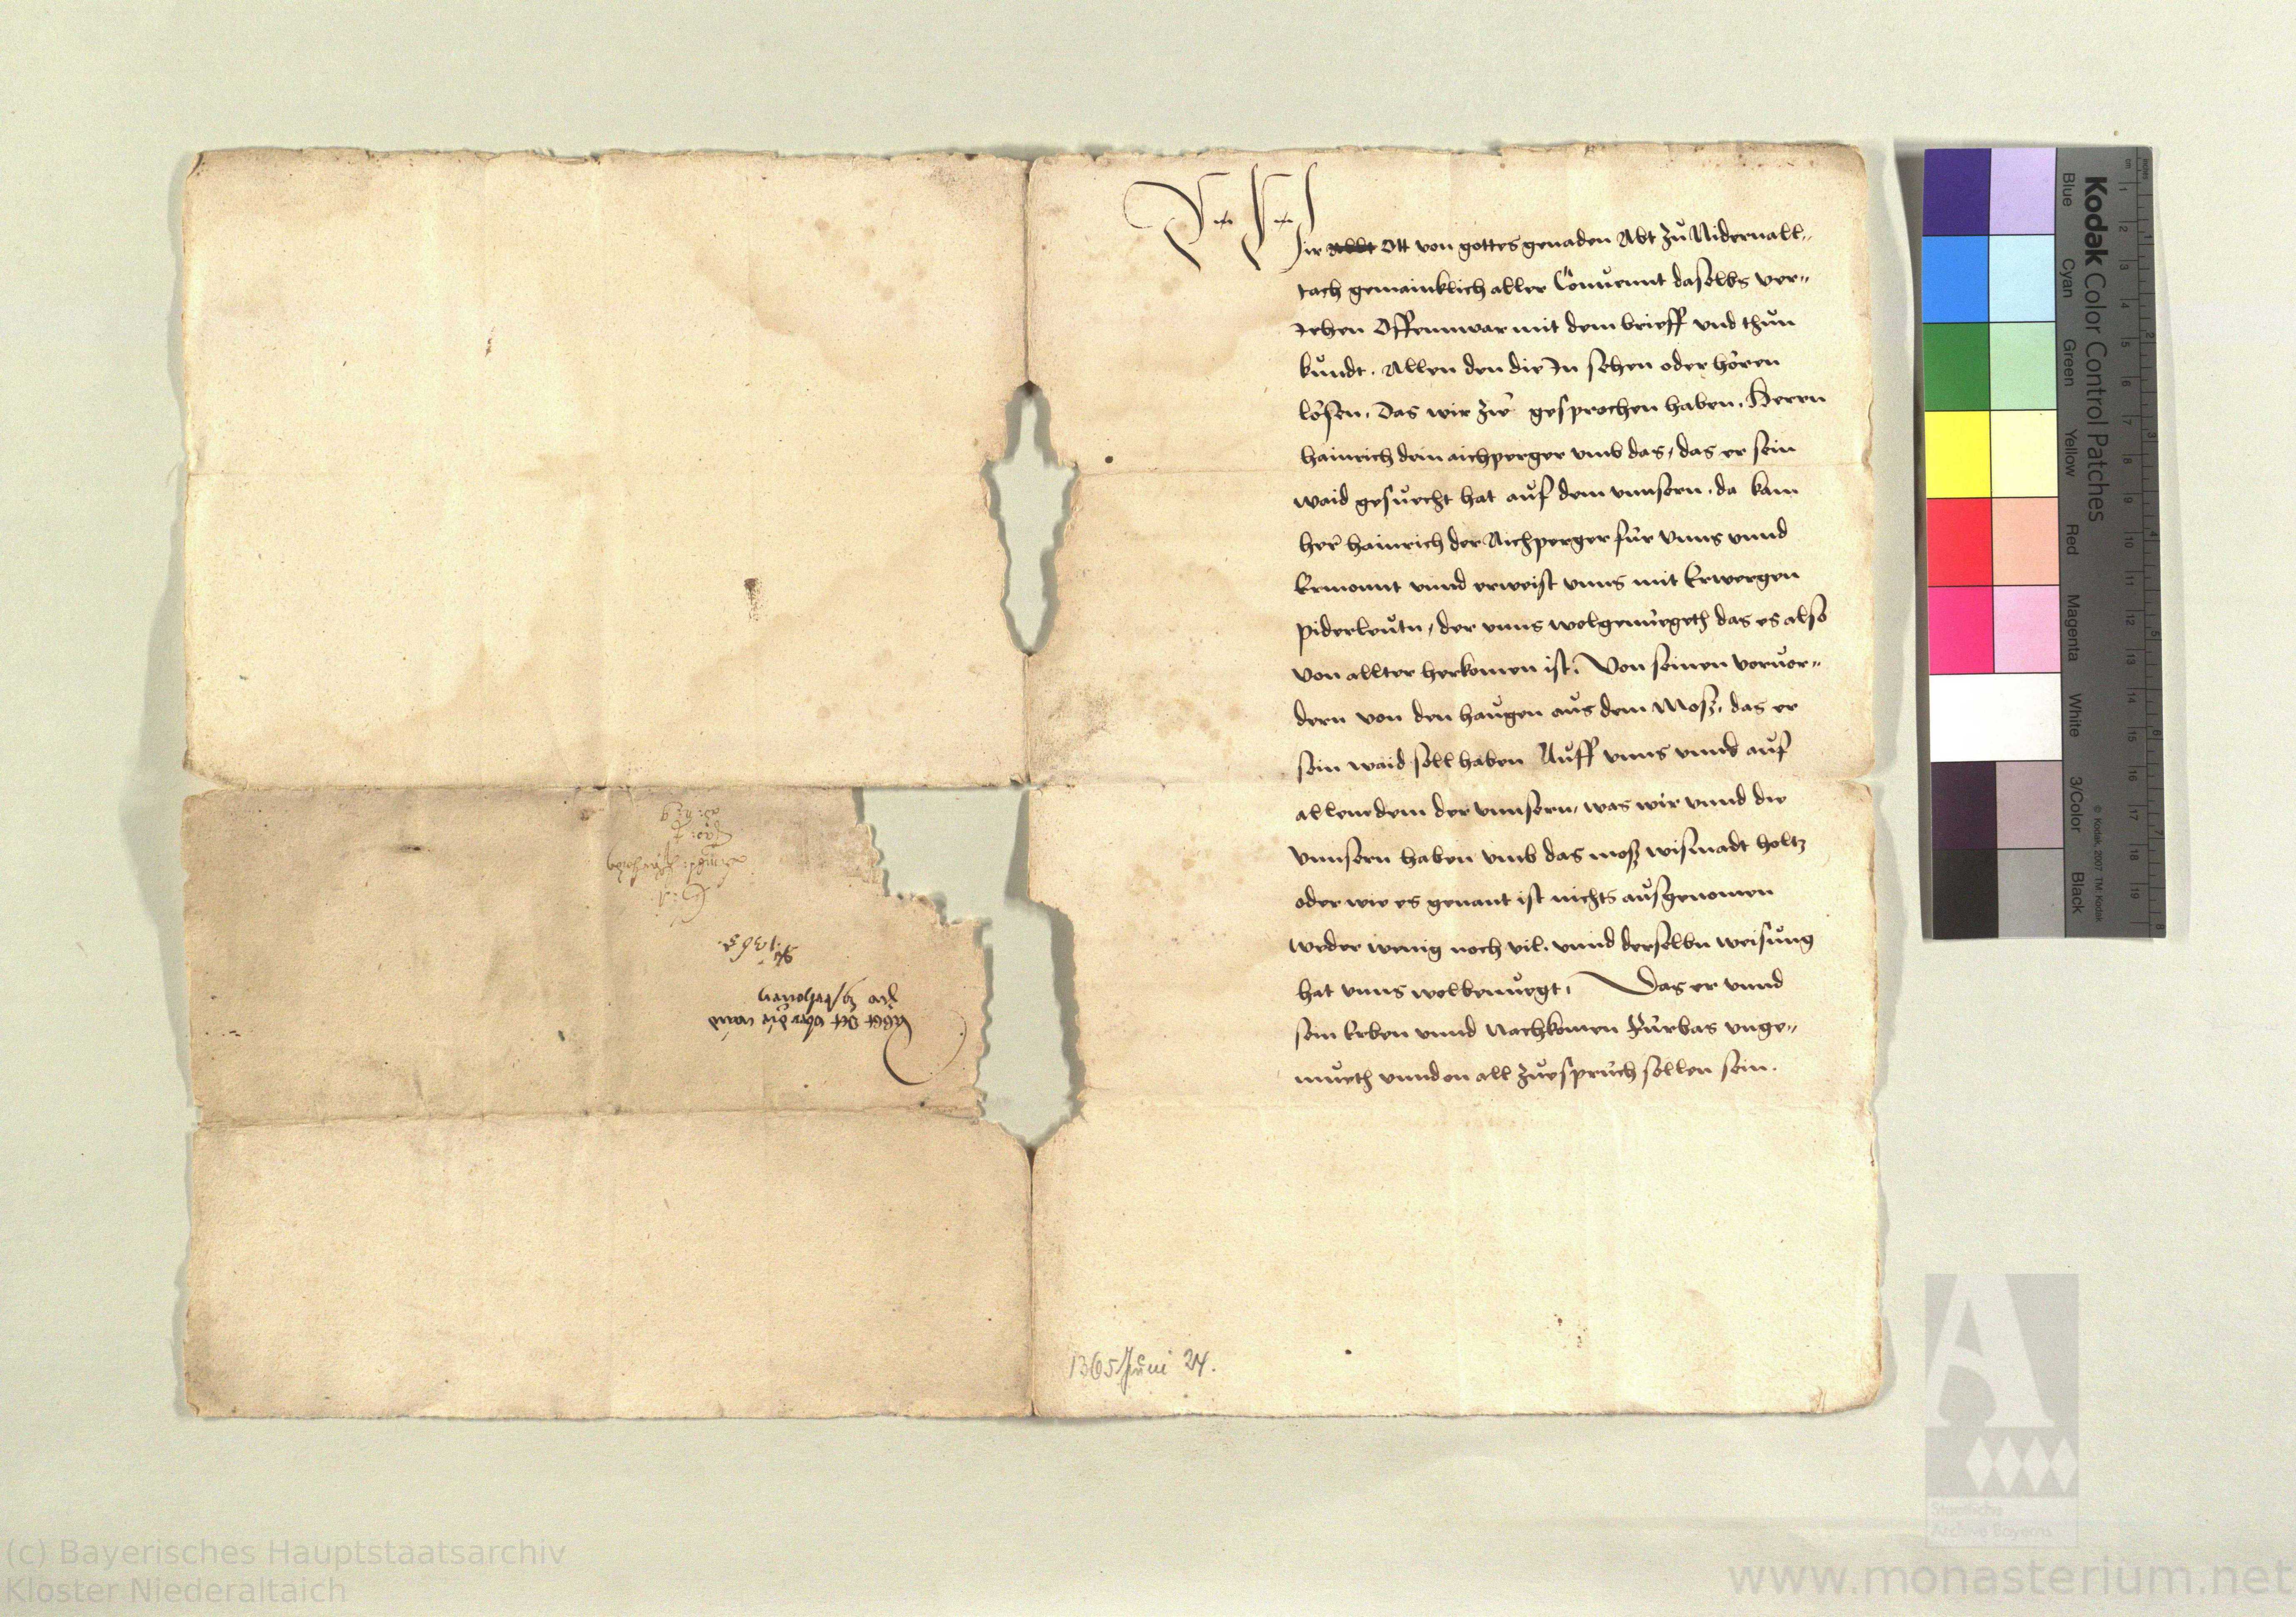 Wir Ott von gottes genaden Abt zů Nidernall„
tach gemainklich aller Conuennt daselbs ver„
Jehen Offennwar mit dem brieff vnd thůn
kůndt. Allen den die In sehen oder hören
lösen. Das wir zẅ gesprochen haben. Herrn
hainrich dem aichperger vmb das, das er sein
waid gesůecht hat aůf dem vnnsern. da kam
her hainrich der Aichperger für vnns vnnd
Ermonnt vnnd erweist vnns mit Erwergen
piderleůtn, der vnns wolgenüegeth das es also
von allter herkomen ist. Von seinen voruor„
dern von den haůgen aůs dem Mosz, das er
sein waid soll haben Aůff vnns vnnd aůf
allem dem der vnnsern, was wir vnnd die
vnnsern haben vmb das mosz wismadt holtz
oder wie es genant ist nichts aůsgenomen
weder wenig noch vil. vnnd derselbn weisůng
hat vnns wolbenůegt. Das er vnnd
sein Erben vnnd Nachkomen Fürbas vnge„
müeth vnnd on all zůesprůch sollen sein.
1365 Juni 24.
Abbt Ott vber die waid
Kodak Color Control Patches
Blue Cyan Green Yellow Red Magenta White 3/Color Black
© Kodak, 2007 TM: Kodak
cm 1 2 3 4 5 6 7 8 9 10 11 12 13 14 15 16 17 18 19
inches 1 2 3 4 5 6 7 8
Staatliche
Archive Bayerns
(c) Bayerisches Hauptstaatsarchiv
Kloster Niederaltaich
www.monasterium.net